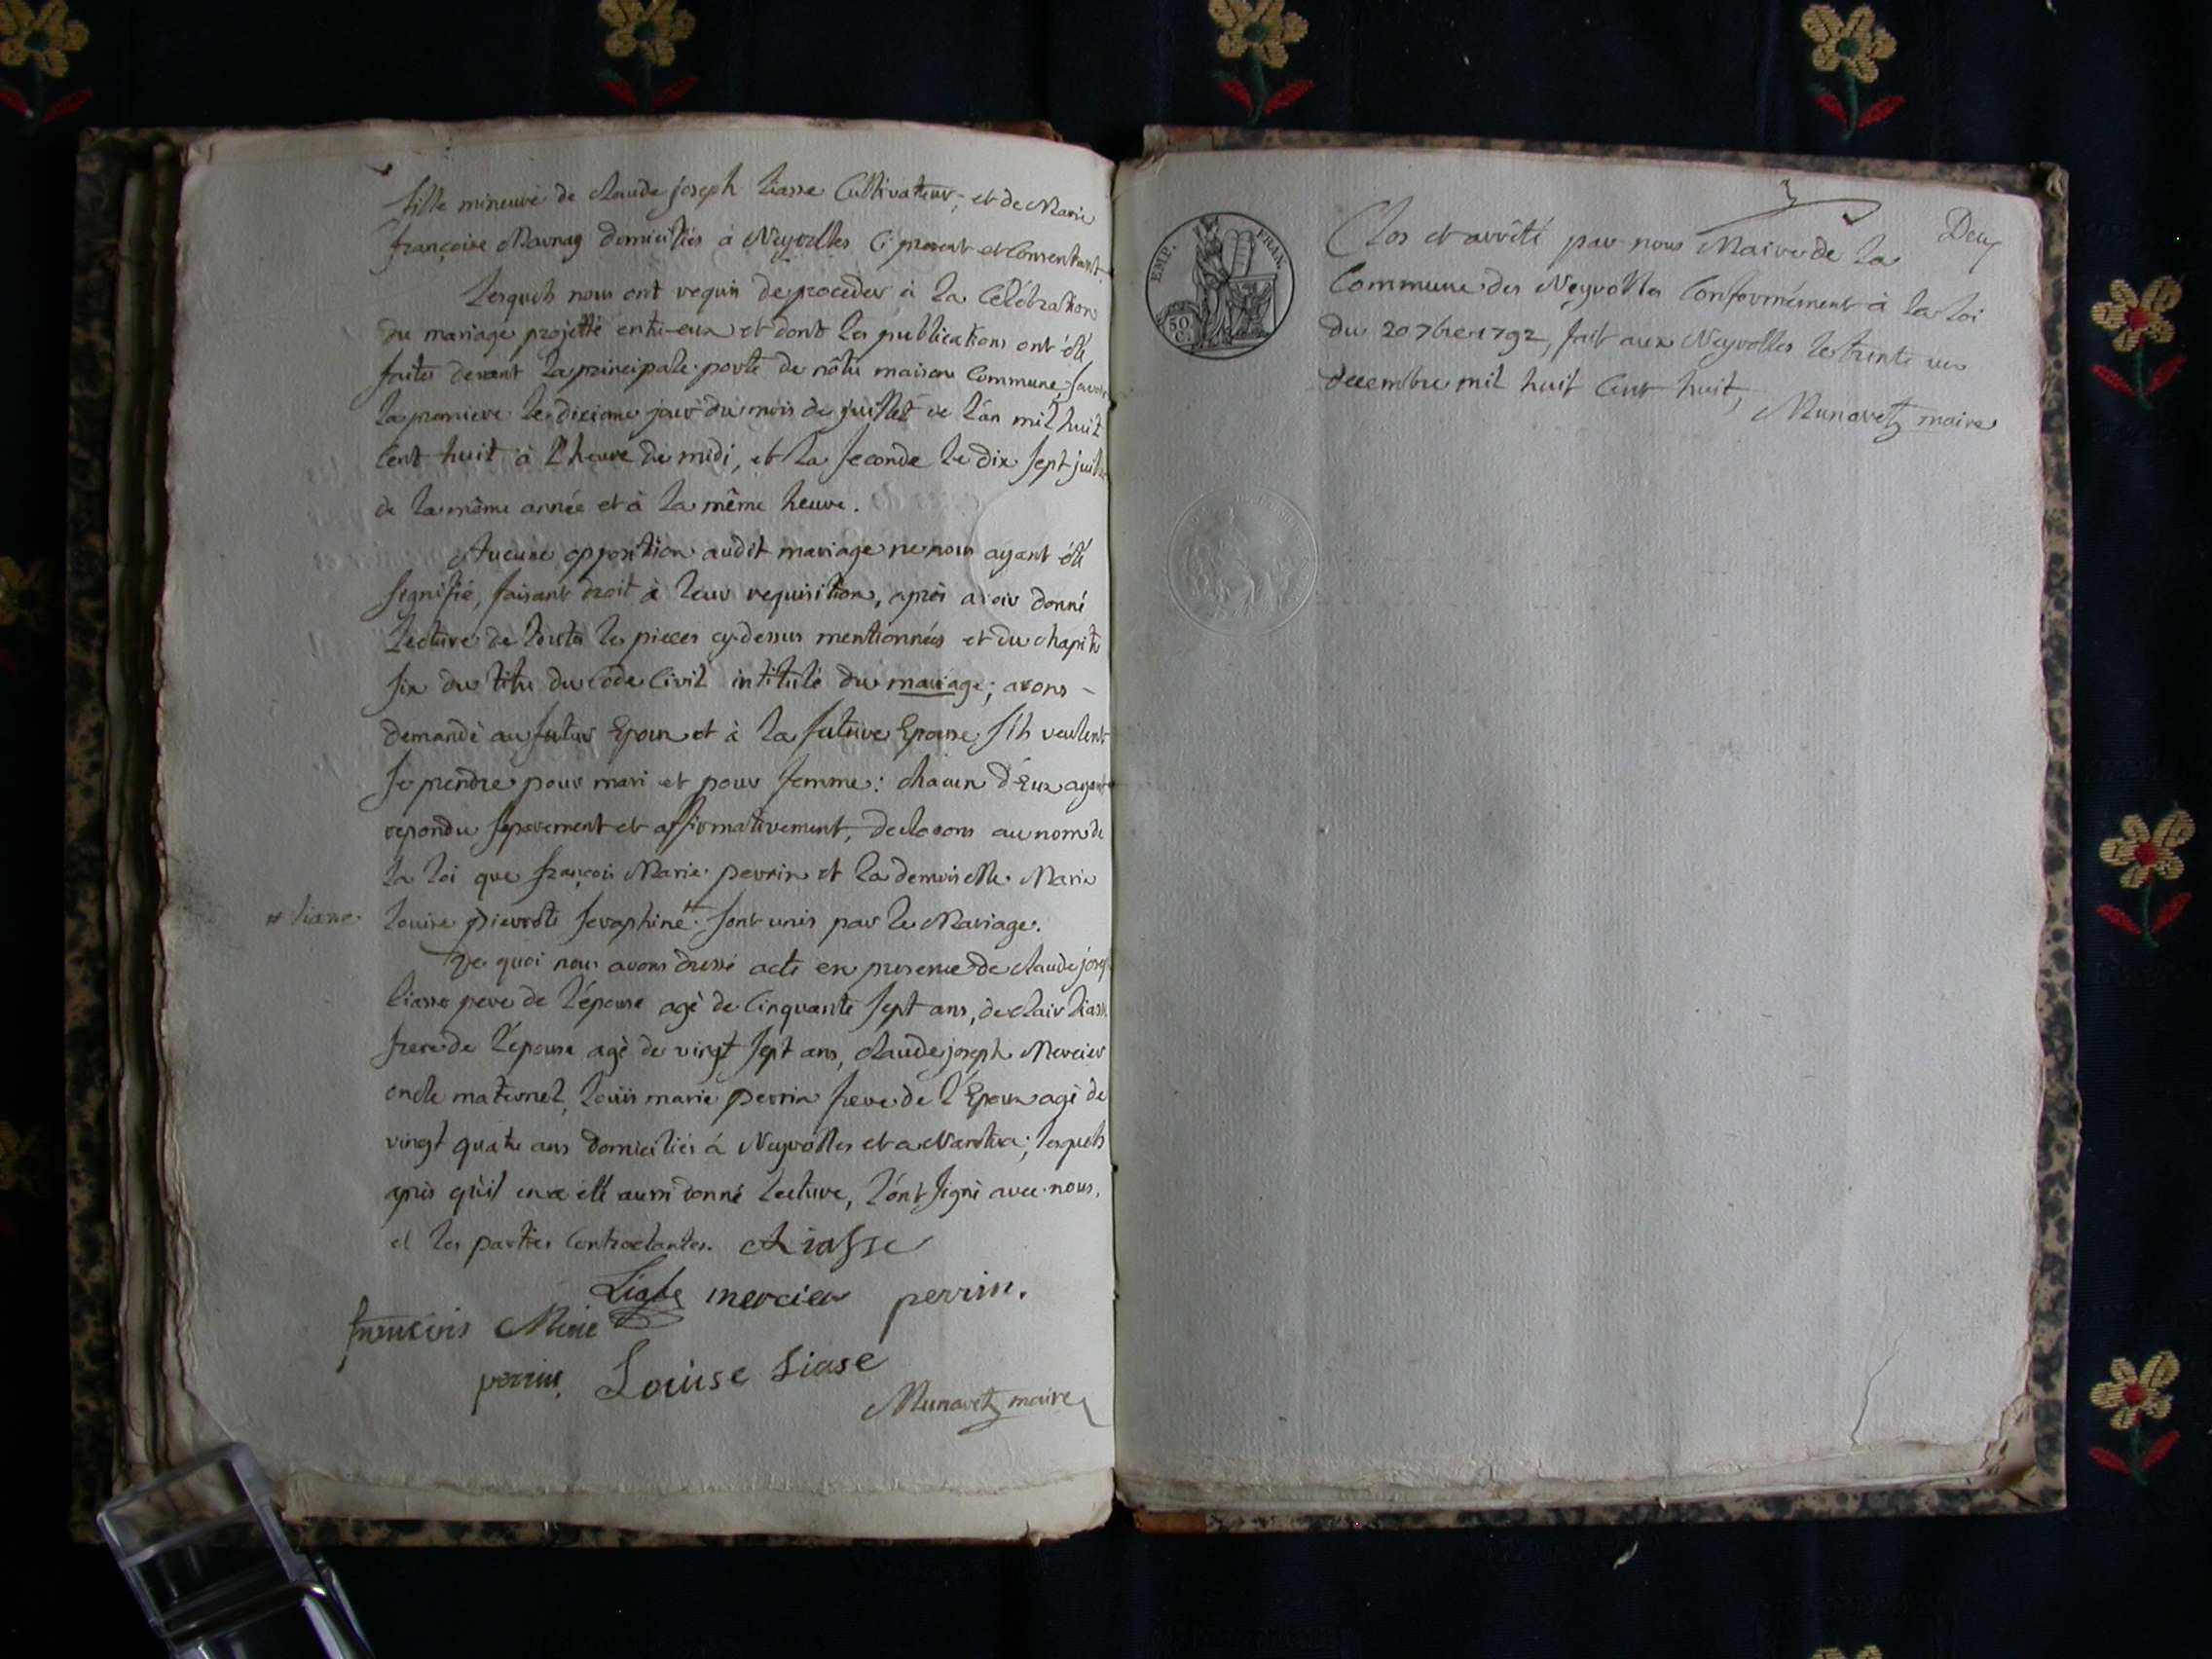 fille mineure de claude joseph liasse Cultivateur, et de Marie
françoise Mornay domiciliés à Neyrolles Ci présent et Consentant
Lesquels nous ont requis de proceder à la Célébration
du mariage projetté entr-eux et dont les publications ont été
faites devant la principale porte de nôtre maison Commune, savoir
la premiere le dixieme jour du mois de juillet de l'an mil huit
Cent huit à l'heure de midi, et la seconde le dix sept juillet
de la même année et à la même heure.
Aucune opposition audit mariage ne nous ayant été
signifié, faisant droit à leur requisition, après avoir donné
lecture de toutes les pieces cy-dessus mentionnées et du chapitre
six du titre du Code Civil intitulé du mariage; avons -
demandé au futur Epoux et à la future Epouse s'ils veulent
se prendre pour mari et pour femme: chacun d'Eux ayant
repondu separement et affirmativement, declarons au nom de
la loi que françois Marie perrin et la demoiselle Marie
# liasse. louise pierrote seraphine # sont unis par le Mariage.
De quoi nous avons dressé acte en presence de claude joseph
liasse pere de l'épouse agé de Cinquante sept ans, de clair liasse
frere de l'épouse agé de vingt sept ans, claude joseph Mercier
oncle maternel, loüis marie perrin frere de l'Epoux agé de
vingt quatre ans domiciliés à Neyrolles et a Nantua; lesquels
après qu'il en a été aussi donné lecture, l'ont signé avec nous,
et les parties Contractantes. Liasse
mercier perrin.
francois Marie
perrin Louise Liase
Munaret maire
Deux
EMP. FRAN.
50 C.
Clos et arrêté par nous Maire de la
Commune des Neyrolles Conformément à la loi
du 20 7bre 1792, fait aux Neyrolles le trente un
decembre mil huit Cent huit,
Munaret maire